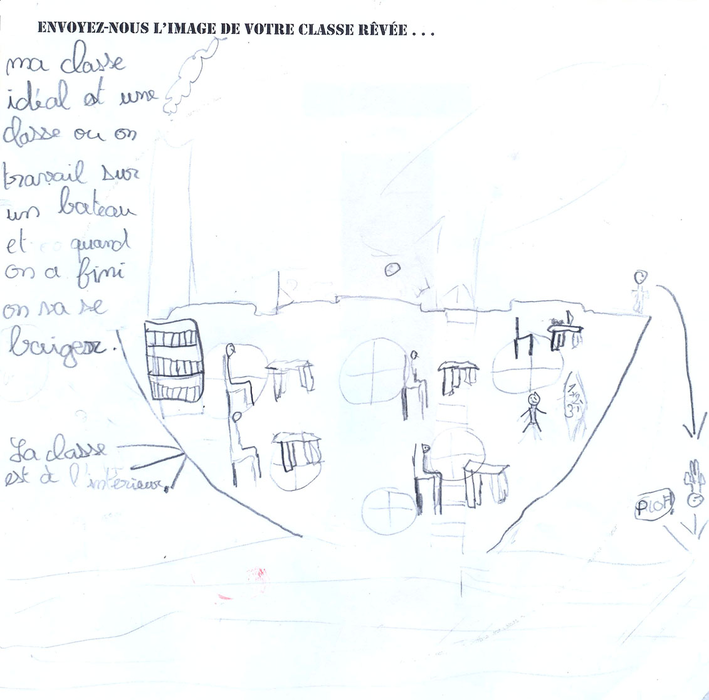 ENVOYEZ-NOUS L'IMAGE DE VOTRE CLASSE RÊVÉE . . .
ma classe
idéal est une
classe ou on
travail sur
un bateau
et quand
on a fini
on va se
baigner !
La classe
est à l'intérieur.
PLOF!